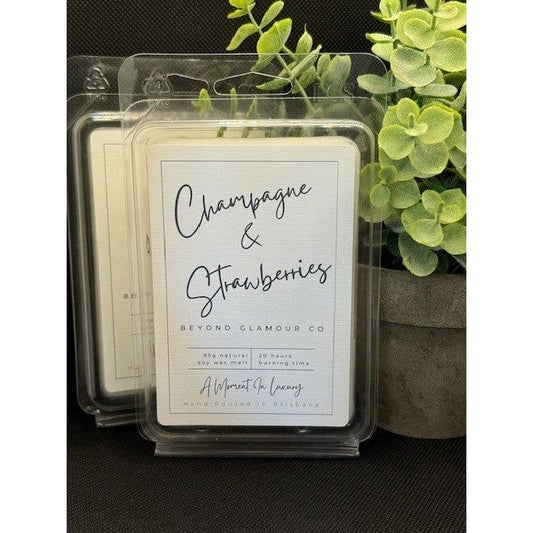 Champagne
&
Strawberries
BEYOND GLAMOUR CO
95g natural
soy wax melt
20 hours
burning time
A Moment In Luxury
Hand Poured In Brisbane